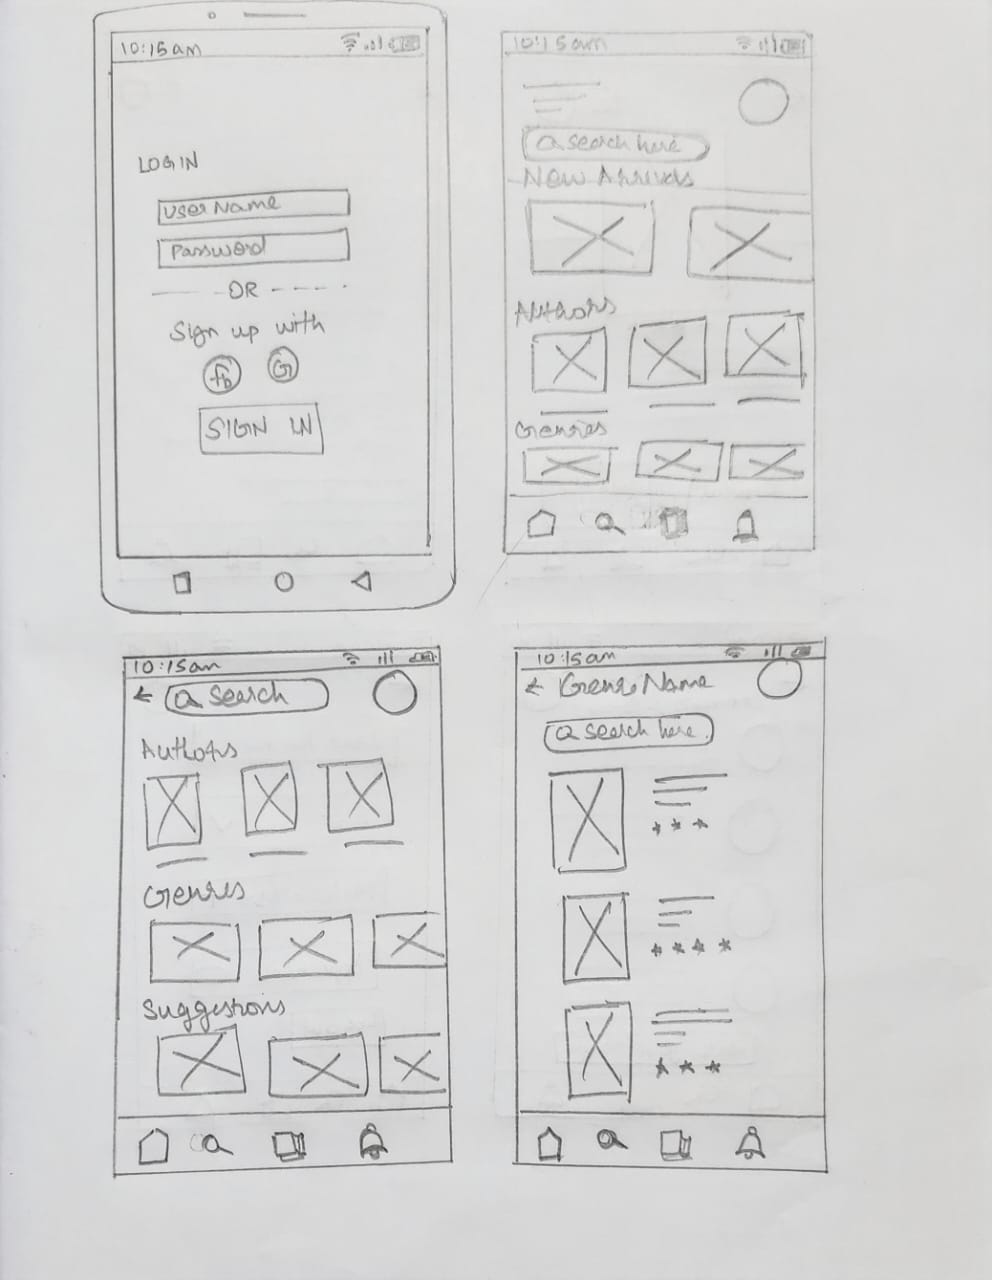 10:15am
LOGIN
UserName
Password
OR
Sign up with
fb G
SIGN IN
10:15am
search here
New Arrivals
Authors
Genres
10:15am
search
Authors
Genres
Suggestions
10:15am
Genre Name
search here